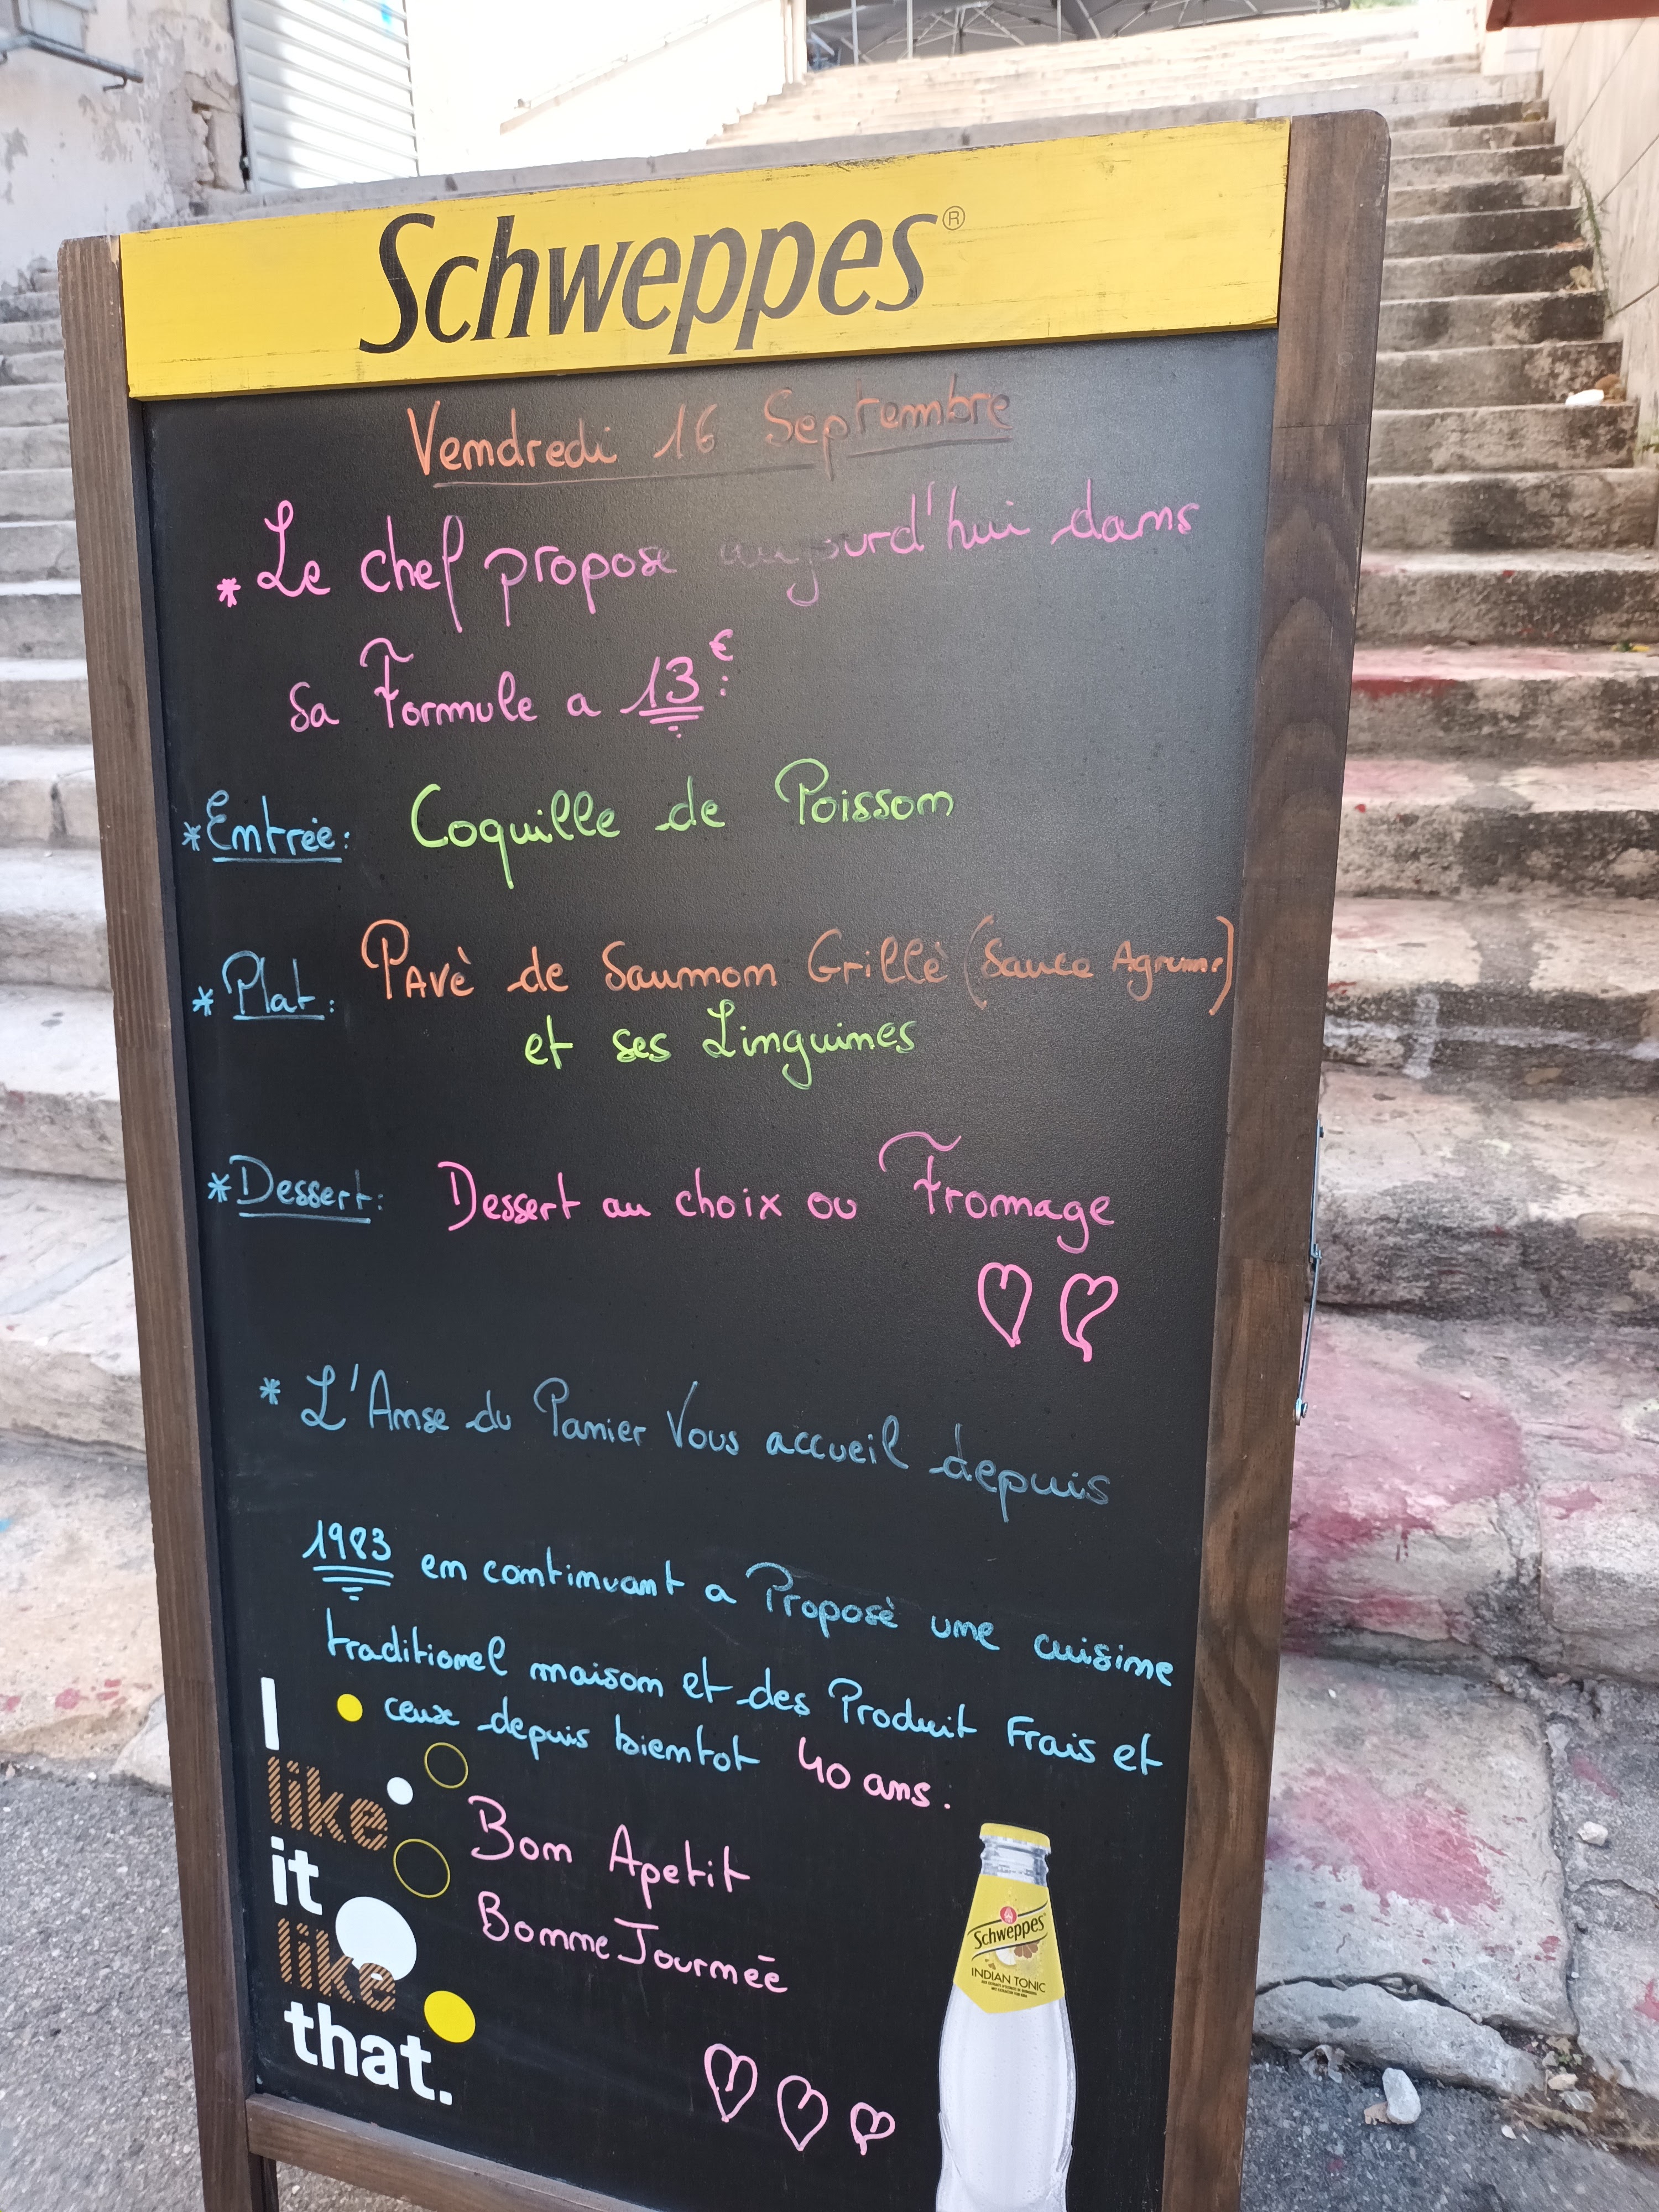 Schweppes®
Vendredi 16 Septembre
* Le chef propose aujourd'hui dans
sa Formule a 13€ :
* Entrée : Coquille de Poisson
* Plat : PAvè de Saumon Grillè (Sauce Agrume)
et ses Linguines
* Dessert : Dessert au choix ou Fromage
* L'Anse du Panier Vous accueil depuis
1983 en continuant a Proposè une cuisine
traditionel maison et des Produit Frais et
ceux depuis bientot 40 ans.
Bon Apetit
Bonne Journée
I
like
it
like
that.
Schweppes
INDIAN TONIC